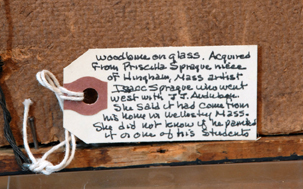 woodbine on glass. Acquired
from Priscilla Sprague niece
of Hingham, Mass artist
Isaac Sprague who went
west with J.J. Audubon.
She said it had come from
his home in Wellesley Mass.
She did not know if he painted
it or one of his students